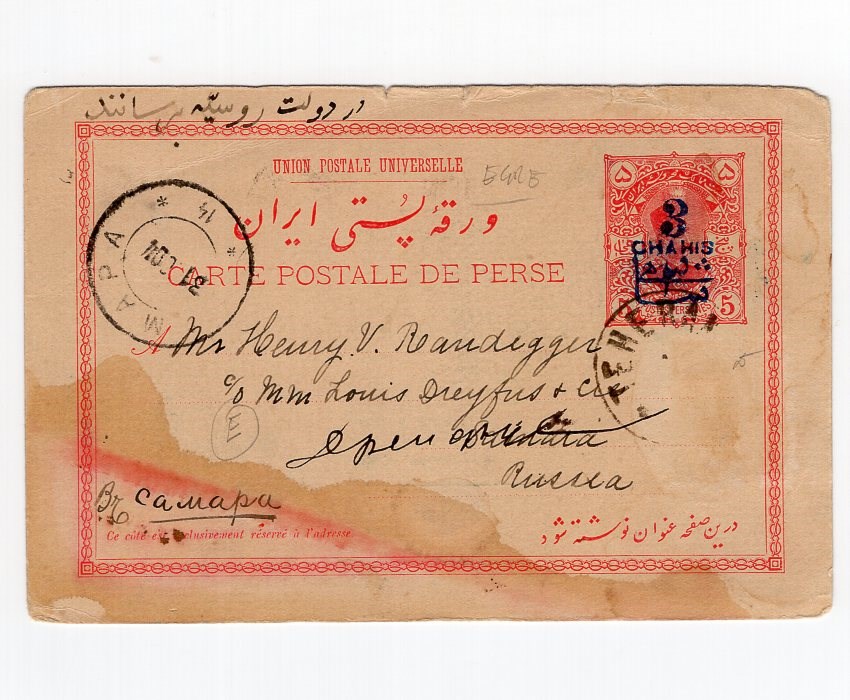 در دولت روسیّه برسانند
UNION POSTALE UNIVERSELLE
ورقهٔ پُستی ایران
CARTE POSTALE DE PERSE
۵ ۵
3
CHAHIS
5
TEHERAN
МАРА
14
A Mr Henry V. Randegger
c/o MM Louis Dreyfus & Cie
Russia
E
Въ Самара
Ce côté est exclusivement réservé à l'adresse
درین صفحه عنوان نوشته شود